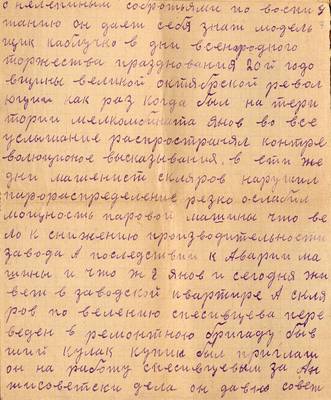 с нелепиным сособтями по воспи
танию он дает себя знат модель
щик каблучко в дни всенородного
торжества празднования 20й годо
вщины великой октябрской револ
юции как раз когда был на тери
тории мелкомбината Янов во все
услышание распространял контре
волюционое высказывания. в ети же
дни машенист скляров нарушил
парораспределение резко ослабил
мощность паровой машины что ве
ло к снижению производительности
завода А последствии к Аварии ма
шины и что ж Янов и сегодня жи
вет в заводской квартире А скля
ров по велению спесивцева пере
веден в ремонтную бригаду быв
ший кулак купин был приглаш
он на работу спесивцевым за Ан
тисоветски дела он давно совет